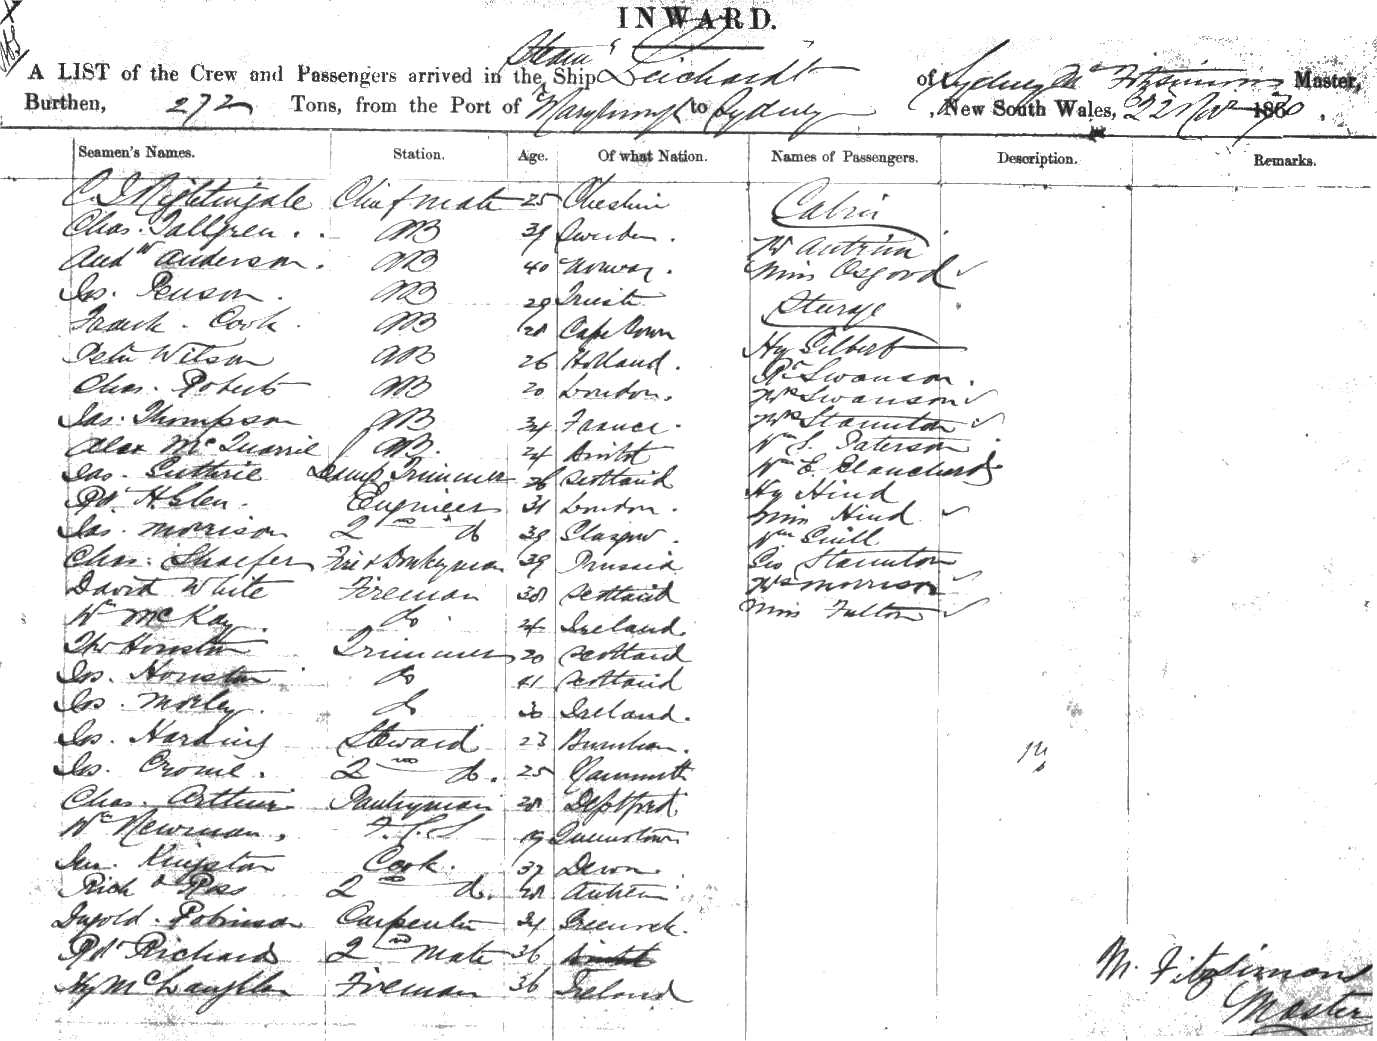 INWARD.
A LIST of the Crew and Passengers arrived in the Steam Ship Leichardt of Sydney Mc Fitzsimons Master,
Burthen, 272 Tons, from the Port of Maryborough to Sydney, New South Wales, 22 Nov 1870.
Seamen's Names. Station. Age. Of what Nation. Names of Passengers. Description. Remarks.
C. J. Nightingale Chief mate 25 Cheshire Cabin
Chas. Tallgren AB 39 Sweden.
Andw Anderson. AB 40 Norway. Mr Autrim
Miss Osgood
Jos. Penson. AB 29 Trieste Sturge
Frank. Cook. AB 28 Cape Town
Peter Wilson AB 26 Holland. Hy Gilbert
Chas. Roberts AB 20 London. Swanson.
Mrs Swanson
Jas. Thompson AB 34 France. Mrs Staunton
Alex McQuarrie AB. 24 Bristol Wm E. Paterson
Jas. Guthrie Lamp Trimmer 26 Scotland Wm E. Blanchard
Rdt H. Glen. Engineer 31 London. Hy Hind
Jas. Morrison 2nd do 39 Glasgow. Miss Hind
Wm Guill
Chas. Shaefer Fire & Donkeyman 39 Prussia Geo Staunton
David White Fireman 38 Scotland Mrs Morrison
Wm McKay do. 24 Ireland. Miss Fulton
Thos Houston Trimmer 20 Scotland
Jos. Houston do 41 Scotland
Jos. Morley. do 30 Ireland.
Jos. Harding Steward 23 Burnham.
Jos. Cromie. 2nd do. 25 Yarmouth
Chas. Arthur Pantryman 28 Deptford
Wm Newman. F.C.S 19 Queenstown
Jno. Kingston Cook. 37 Devon
Richd Ross 2nd do. 28 Antrim
Ingold. Robinson Carpenter 24 Greenock.
Rdt Richards 2nd mate 36 Bristol
Hy McLaughlan Fireman 36 Ireland
M. Fitzsimons
Master